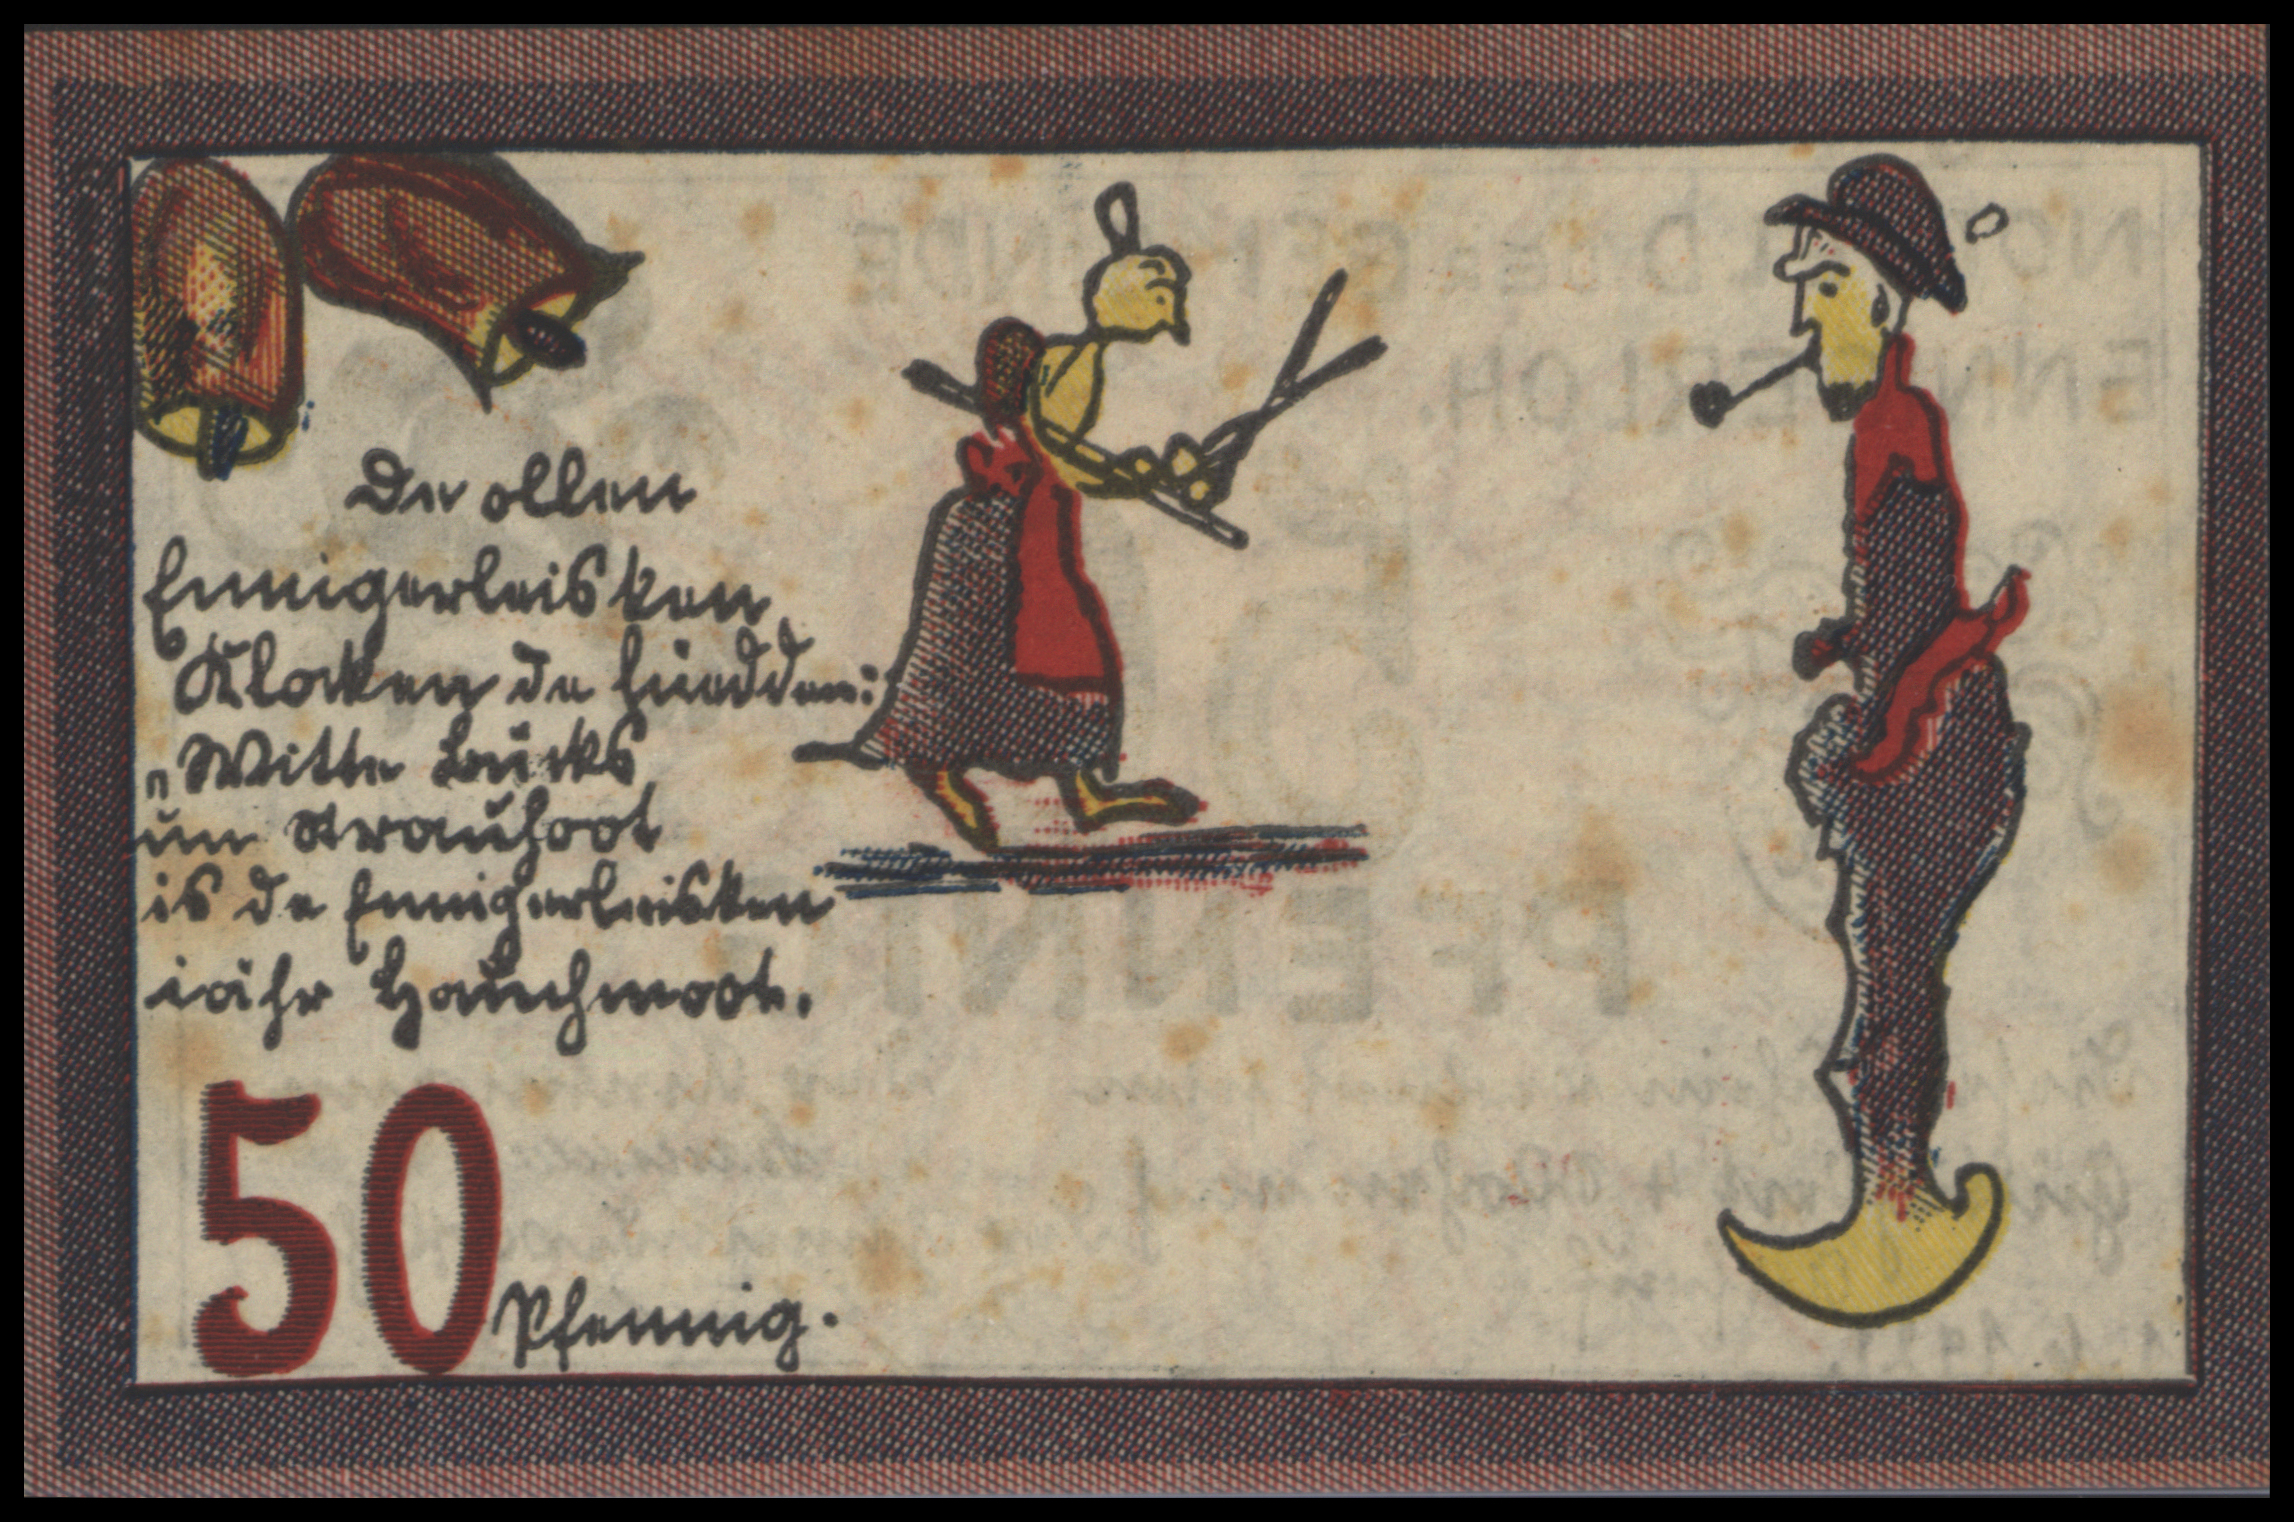 De ollen
Ennigerleisken
Klocken de lüedden:
„Witte Bücks
un Strauhoot
is de Ennigerleisken
iähr Hauchmoot.
50 Pfennig.